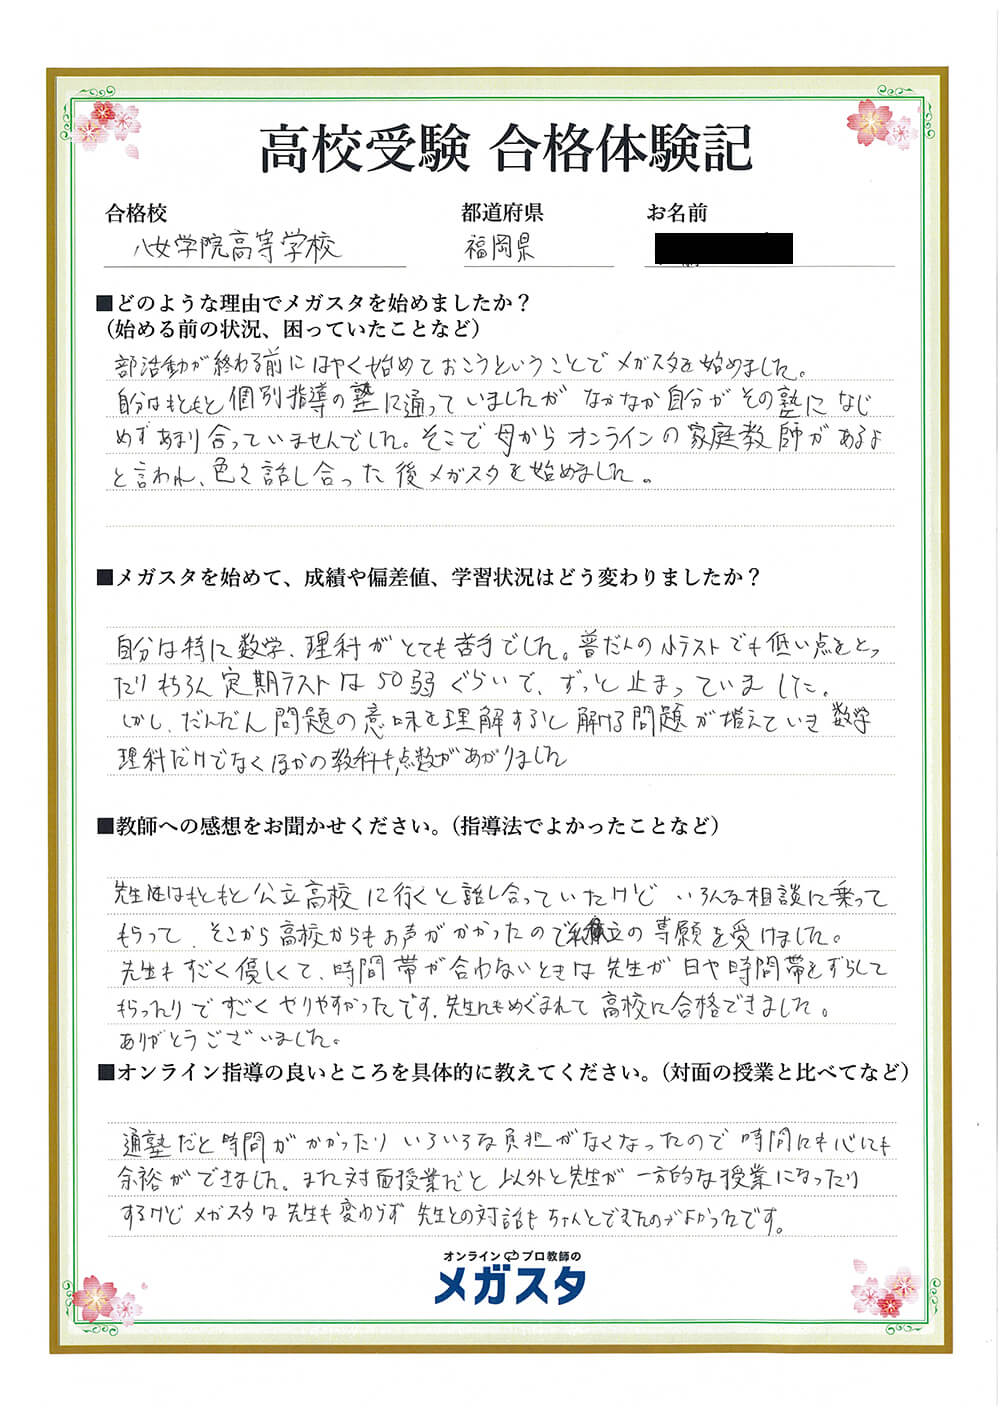 高校受験 合格体験記
合格校 都道府県 お名前
八女学院高等学校 福岡県
■どのような理由でメガスタを始めましたか？
（始める前の状況、困っていたことなど）
部活動が終わる前にはやく始めておこうということでメガスタを始めました。
自分はもともと個別指導の塾に通っていましたがなかなか自分がその塾になじ
めずあまり合っていませんでした。そこで母からオンラインの家庭教師があるよ
と言われ、色々話し合った後メガスタを始めました。
■メガスタを始めて、成績や偏差値、学習状況はどう変わりましたか？
自分は特に数学、理科がとても苦手でした。普だんの小テストでも低い点をとっ
たりもちろん定期テストは50弱ぐらいで、ずっと止まっていました。
しかし、だんだん問題の意味を理解すると解ける問題が増えていき数学
理科だけでなくほかの教科も点数があがりました
■教師への感想をお聞かせください。（指導法でよかったことなど）
先生はもともと公立高校に行くと話し合っていたけどいろんな相談に乗って
もらって、そこから高校からもお声がかかったので私立の専願を受けました。
先生もすごく優しくて、時間帯が合わないときは先生が日や時間帯をずらして
もらったりですごくやりやすかったです。先生にもめぐまれて高校に合格できました。
ありがとうございました。
■オンライン指導の良いところを具体的に教えてください。（対面の授業と比べてなど）
通塾だと時間がかかったりいろいろな負担がなくなったので時間にも心にも
余裕ができました。また対面授業だと以外と先生が一方的な授業になったり
するけどメガスタは先生も変わらず先生との対話もちゃんとできたのがよかったです。
オンライン プロ教師の
メガスタ